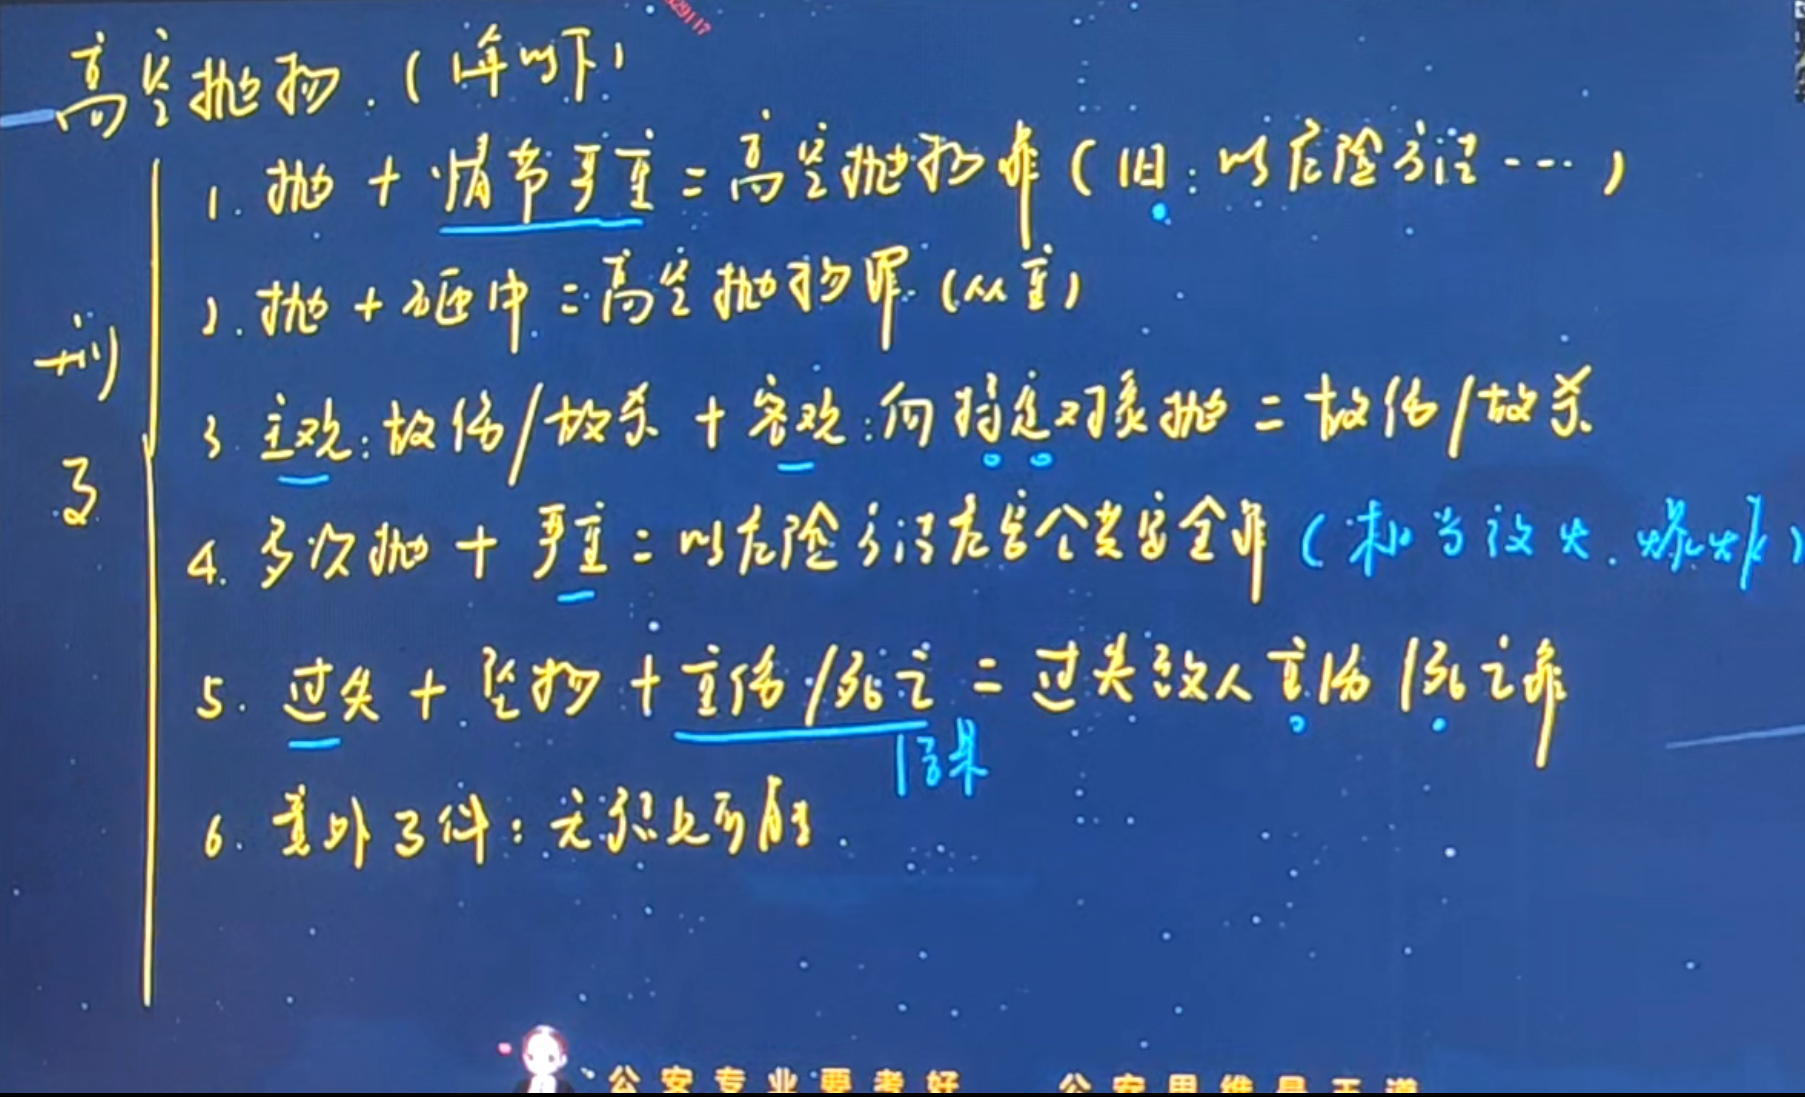 高空抛物.(1年以下)
1. 抛 + 情节严重 = 高空抛物罪(旧:以危险方法……)
2. 抛 + 砸中 = 高空抛物罪(从重)
刑
3 主观:故伤/故杀 + 客观:向特定对象抛 = 故伤/故杀
事
4. 多次抛 + 严重 = 以危险方法危害公共安全罪(相当放火.爆炸)
5. 过失 + 坠物 + 重伤/死亡 = 过失致人重伤/死亡罪
结果
6. 意外事件:无积点可能
公安专业要考好 公安思维是王道